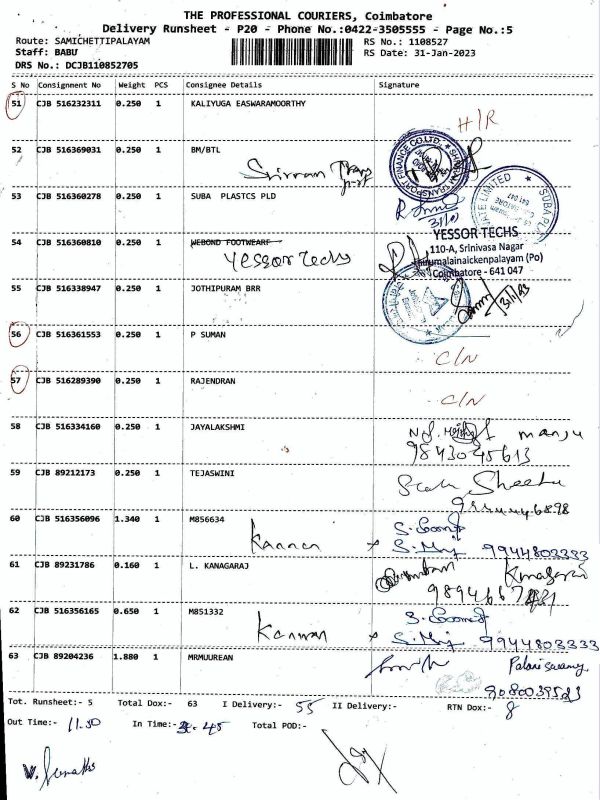 THE PROFESSIONAL COURIERS, Coimbatore
Delivery Runsheet - P20 - Phone No.:0422-3505555 - Page No.:5
Route: SAMICHETTIPALAYAM RS No.: 1108527
Staff: BABU RS Date: 31-Jan-2023
DRS No.: DCJB110852705
S No Consignment No Weight PCS Consignee Details Signature
51 CJB 516232311 0.250 1 KALIYUGA EASWARAMOORTHY
H/R
52 CJB 516369031 0.250 1 BM/BTL
53 CJB 516360278 0.250 1 SUBA PLASTCS PLD
54 CJB 516360810 0.250 1 WEBOND FOOTWEARF
Yessor Techs
YESSOR TECHS
110-A, Srinivasa Nagar
(Po)
Coimbatore - 641 047
55 CJB 516338947 0.250 1 JOTHIPURAM BRR
56 CJB 516361553 0.250 1 P SUMAN
C/N
57 CJB 516289390 0.250 1 RAJENDRAN
C/N
58 CJB 516334160 0.250 1 JAYALAKSHMI
manju
9843045613
59 CJB 89212173 0.250 1 TEJASWINI
60 CJB 516356096 1.340 1 M856634
Kannan 9944803333
61 CJB 89231786 0.160 1 L. KANAGARAJ
62 CJB 516356165 0.650 1 M851332
Kannan 9944803333
63 CJB 89204236 1.880 1 MRMUUREAN
Palanisamy
Tot. Runsheet:- 5 Total Dox:- 63 I Delivery:- 55 II Delivery:- RTN Dox:- 8
Out Time:- 11.50 In Time:- Total POD:-